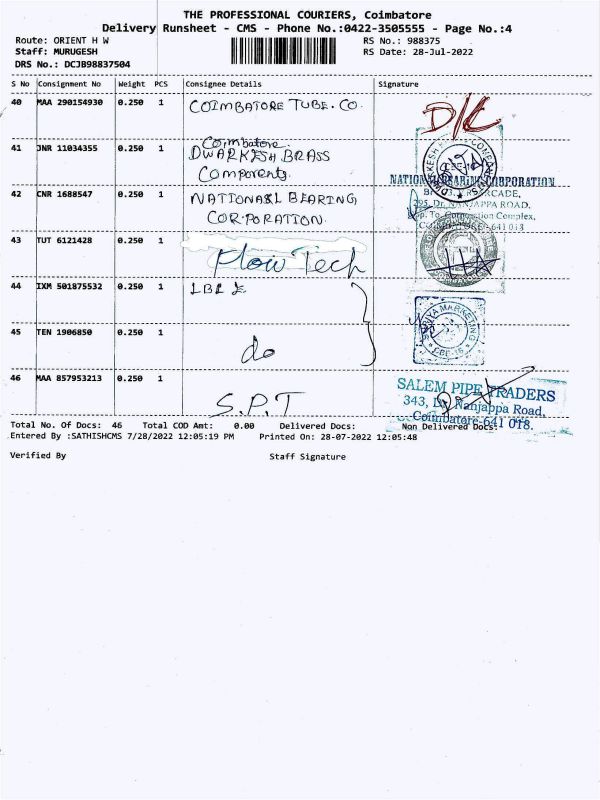 THE PROFESSIONAL COURIERS, Coimbatore
Delivery Runsheet - CMS - Phone No.:0422-3505555 - Page No.:4
Route: ORIENT H W
Staff: MURUGESH
DRS No.: DCJB98837504
RS No.: 988375
RS Date: 28-Jul-2022
S No Consignment No Weight PCS Consignee Details Signature
40 MAA 290154930 0.250 1 COIMBATORE TUBE. CO.
D/C
Coimbatore.
41 JNR 11034355 0.250 1 DWARKESH BRASS
Components.
42 CNR 1688547 0.250 1 NATIONAL BEARING
CORPORATION.
NATIONAL BEARING CORPORATION
295, Dr. NANJAPPA ROAD,
Opp. To. Corporation Complex,
COIMBATORE-641 018
43 TUT 6121428 0.250 1 Flow Tech
44 IXM 501875532 0.250 1
MARKETING
CBE-18
45 TEN 1906850 0.250 1 do
46 MAA 857953213 0.250 1 S.P.T
SALEM PIPE TRADERS
343, Dr. Nanjappa Road,
Coimbatore-641 018.
Total No. Of Docs: 46 Total COD Amt: 0.00 Delivered Docs: Non Delivered Docs:
Entered By :SATHISHCMS 7/28/2022 12:05:19 PM Printed On: 28-07-2022 12:05:48
Verified By Staff Signature